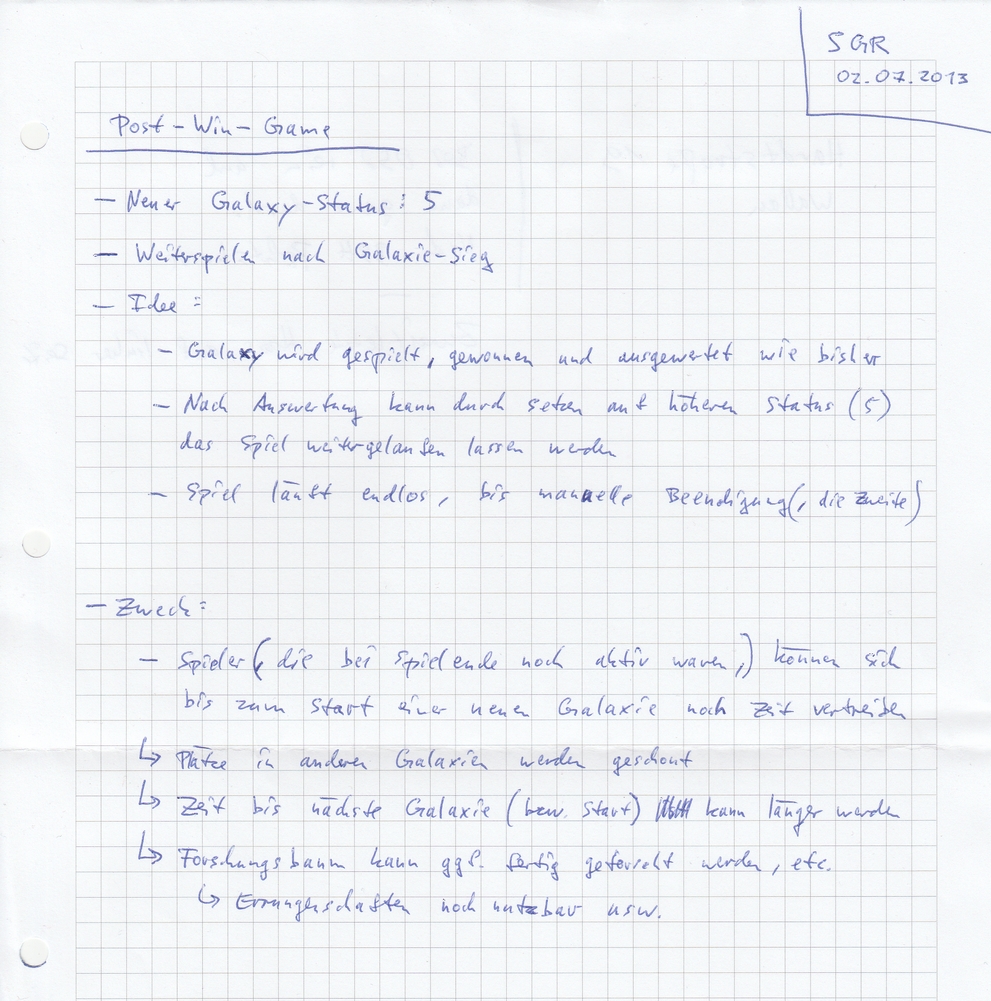 SGR
02.07.2013
Post-Win-Game
- Neuer Galaxy-Status: 5
- Weiterspielen nach Galaxie-Sieg
- Idee:
- Galaxy wird gespielt, gewonnen und ausgewertet wie bisher
- Nach Auswertung kann durch setzen auf höheren Status (5)
das Spiel weitergelaufen lassen werden
- Spiel läuft endlos, bis manuelle Beendigung (, die Zweite)
- Zweck:
- Spieler (, die bei Spielende noch aktiv waren,) können sich
bis zum Start einer neuen Galaxie noch Zeit vertreiben
↳ Plätze in anderen Galaxien werden geschont
↳ Zeit bis nächste Galaxie (bzw. Start) kann länger werden
↳ Forschungsbaum kann ggf. fertig geforscht werden, etc.
↳ Errungenschaften noch nutzbar usw.